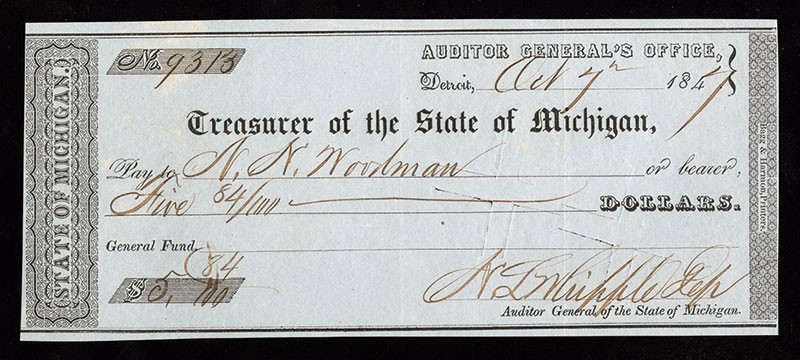 STATE OF MICHIGAN.
No. 9313
AUDITOR GENERAL'S OFFICE,
Detroit, Oct 7th 1847
Treasurer of the State of Michigan,
Pay to N. N. Woodman or bearer,
Five 84/100 DOLLARS.
General Fund.
$ 5, 84/100
Whipple Dep
Auditor General of the State of Michigan.
Bagg & Harmon, Printers.